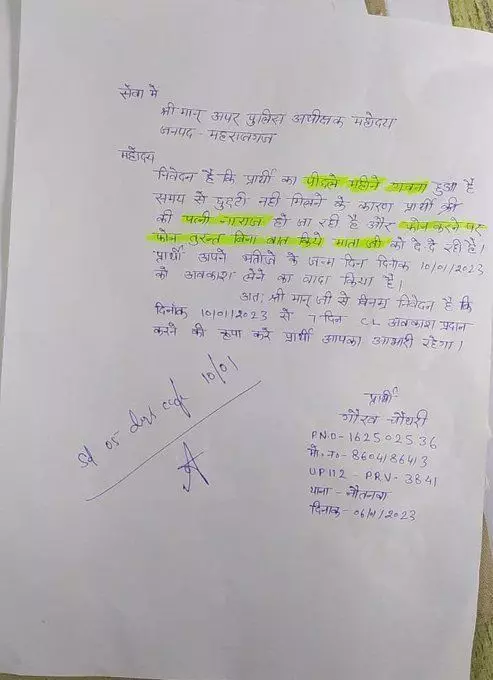 सेवा में
श्री मान् अपर पुलिस अधीक्षक महोदय
जनपद - महराजगंज
महोदय
निवेदन है कि प्रार्थी का पिछले महीने गवना हुआ है
समय से छुट्टी नही मिलने के कारण प्रार्थी श्री
की पत्नी नाराज हो जा रही है और फोन करने पर
फोन तुरन्त बिना बात किये माता जी को दे दे रही है।
प्रार्थी अपने भतीजे के जन्म दिन दिनांक 10/01/2023
को अवकाश लेने का वादा किया है।
अतः श्री मान् जी से विनम्र निवेदन है कि
दिनांक 10/01/2023 से 7 दिन CL अवकाश प्रदान
करने की कृपा करे प्रार्थी आपका आभारी रहेगा।
प्रार्थी
गौरव चौधरी
PNO-162502536
मो. न०-8604186413
UP112 - PRV- 3841
थाना - नौतनवा
दिनांक - 06/01/2023
05 10/01